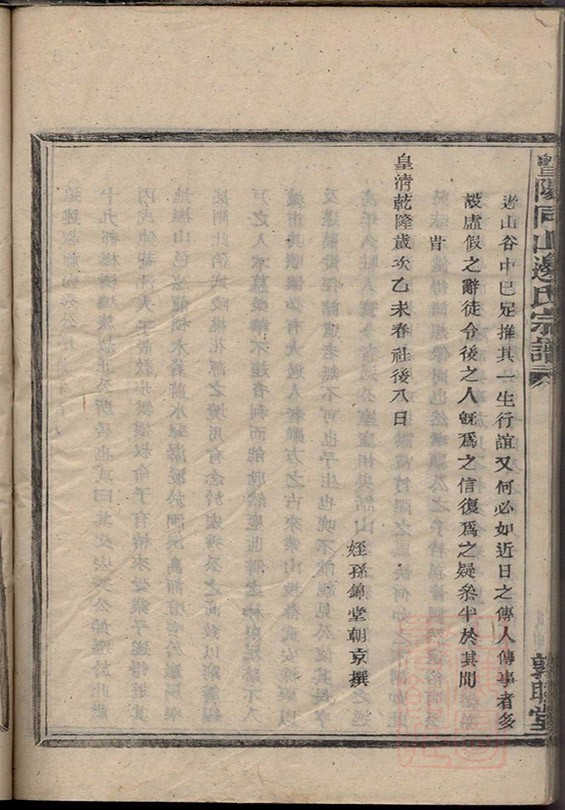 暨陽同山邊氏宗譜
敦睦堂
耆山谷中已足推其一生行誼又何必如近日之傳人傳事者多
設虛假之辭徒令後之人旣爲之信復爲之疑叅半於其間
皆
皇清乾隆歲次乙未春社後八日
姪孫錦堂朝京撰